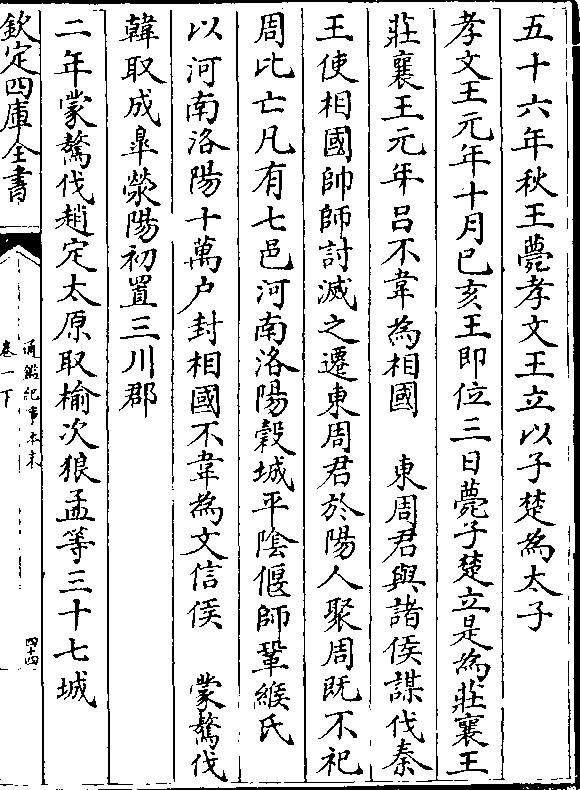 五十六年秋王薨孝文王立以子楚為太子
孝文王元年十月己亥王即位三日薨子楚立是為莊襄王
莊襄王元年呂不韋為相國　東周君與諸侯謀伐秦
王使相國帥師討滅之遷東周君於陽人聚周既不祀
周比亡凡有七邑河南洛陽穀城平陰偃師鞏緱氏
以河南洛陽十萬户封相國不韋為文信侯　蒙驁伐
韓取成臯滎陽初置三川郡
二年蒙驁伐趙定太原取榆次狼孟等三十七城
欽定四庫全書
通鑑紀事本末
卷一下
四十四